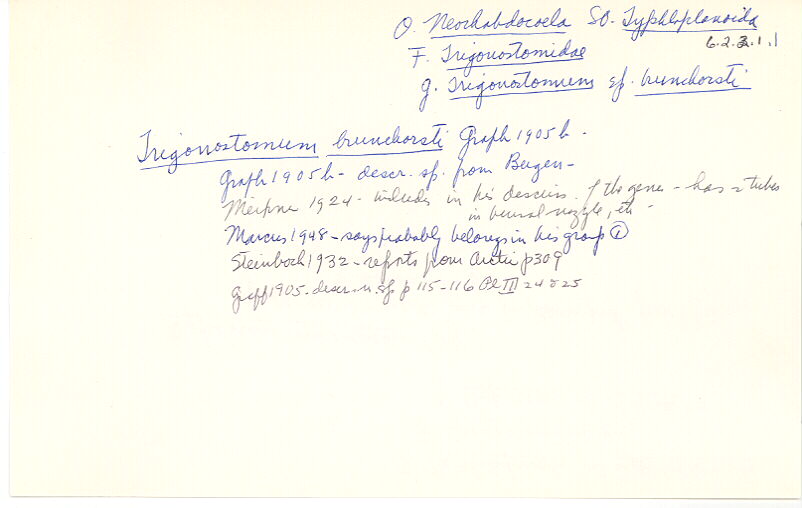 O. Neorhabdocoela SO. Typhloplanoida
6.2.3.1.1
F. Trigonostomidae
g. Trigonostomum sp. brunchorsti
Trigonostomum brunchorsti Graff 1905 b -
Graff 1905 b - descr. sp. from Bergen -
Meixner 1924 - includes in his discuss. of the genus - has 2 tubes
in bursal nozzle, etc -
Marcus 1948 - says probably belongs in his group ①
Steinbock 1932 - reports from Arctic p 309
Graff 1905 - descr. n. sp. p 115-116 Pl III 24 & 25